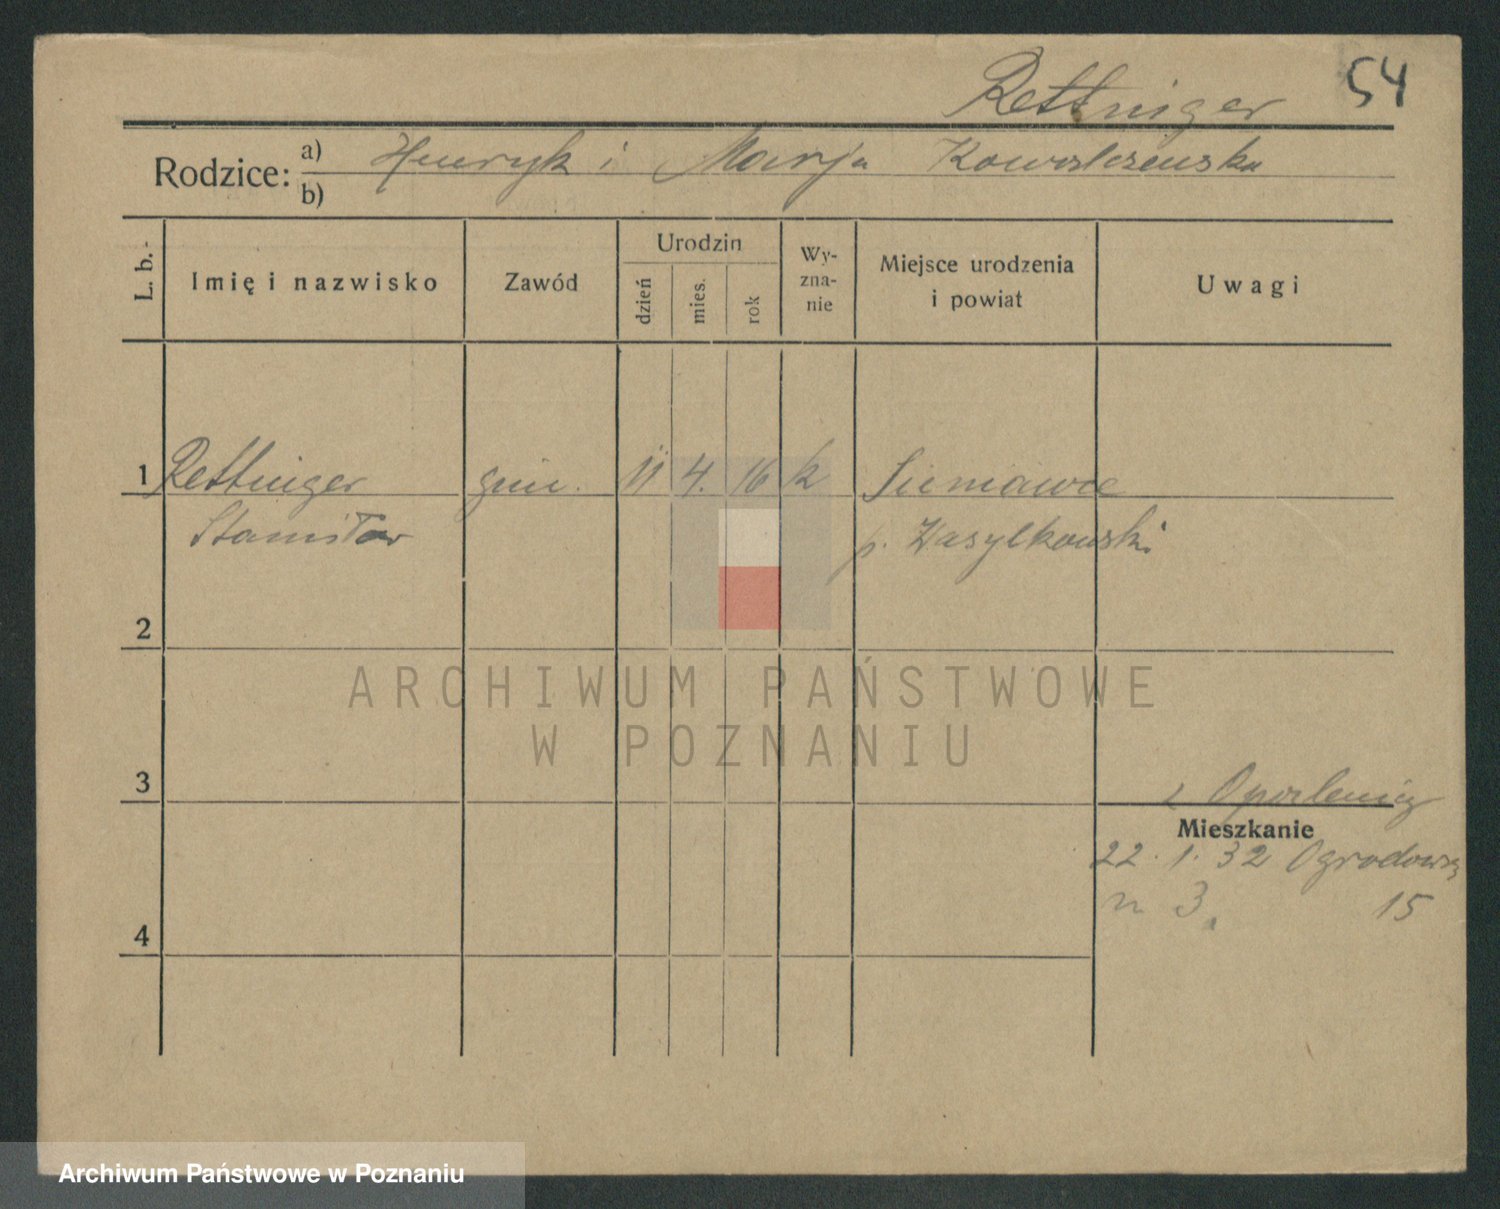 Rettinger 54
Rodzice: a) Henryk i Marja Kowalczewska
b)
L. b. Imię i nazwisko Zawód Urodzin dzień mies. rok Wyznanie Miejsce urodzenia i powiat Uwagi
1 Rettinger gim. 11 4. 16 k
Stanisław p. Wasylkowski
2
ARCHIWUM PAŃSTWOWE
W POZNANIU
3
z Opalenicy
Mieszkanie
22. 1. 32 Ogrodowa
m 3. 15
4
Archiwum Państwowe w Poznaniu